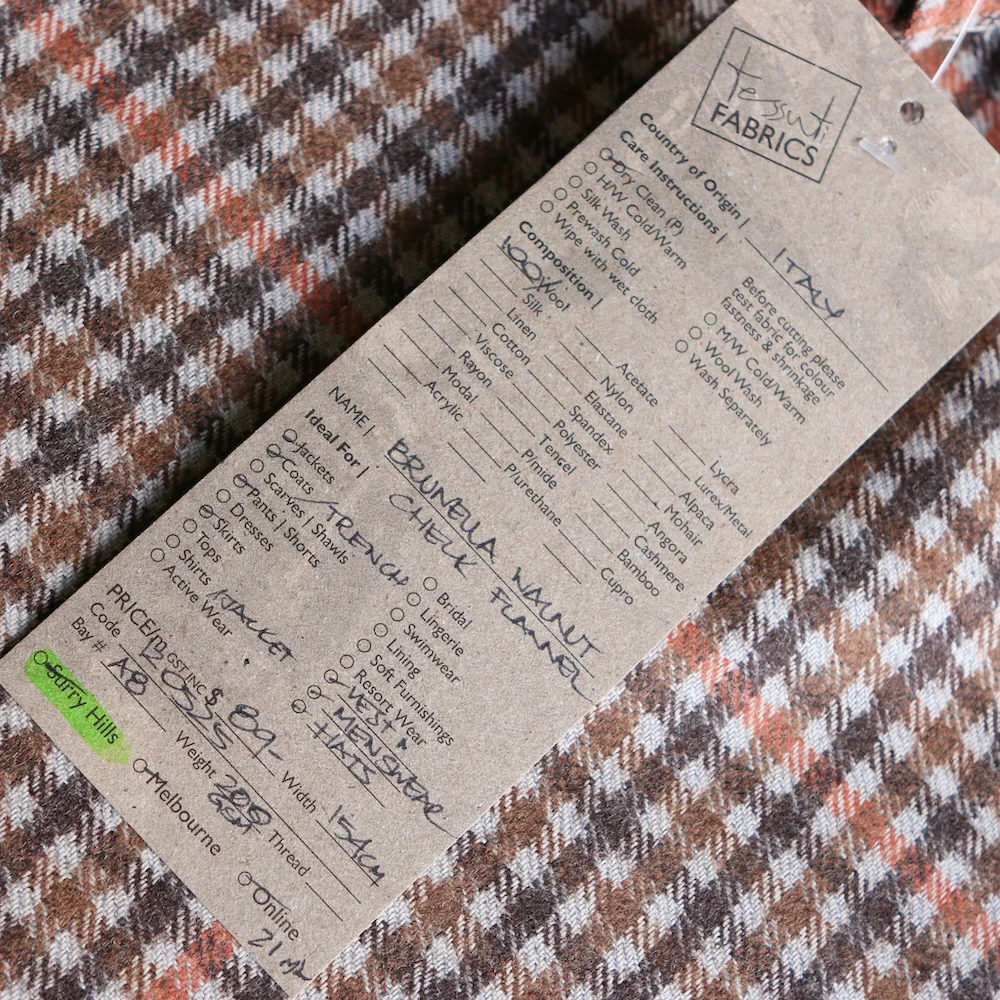 Tessuti
FABRICS
Country of Origin | ITALY
Care Instructions |
Dry Clean (P)
H/W Cold/Warm
Silk Wash
Prewash Cold
Wipe with wet cloth
Before cutting please
test fabric for colour
fastness & shrinkage
M/W Cold/Warm
Wool Wash
Wash Separately
Composition |
100% Wool
Silk
Linen
Cotton
Viscose
Rayon
Modal
Acrylic
Acetate
Nylon
Elastane
Spandex
Polyester
Tencel
P/mide
P/urethane
Lycra
Lurex/Metal
Alpaca
Mohair
Angora
Cashmere
Bamboo
Cupro
NAME | BRUNELLA WALNUT
CHECK FLANNEL
Ideal For |
Jackets
Coats / TRENCH
Scarves | Shawls
Pants | Shorts
Dresses
Skirts
Tops
Shirts / JACKET
Active Wear
Bridal
Lingerie
Swimwear
Lining
Soft Furnishings
Resort Wear
VEST
MENSWEAR
HATS
PRICE/m GST INC $ 89- Width 154cm
Code Weight Thread
Bay # A8
Surry Hills
Melbourne
Online